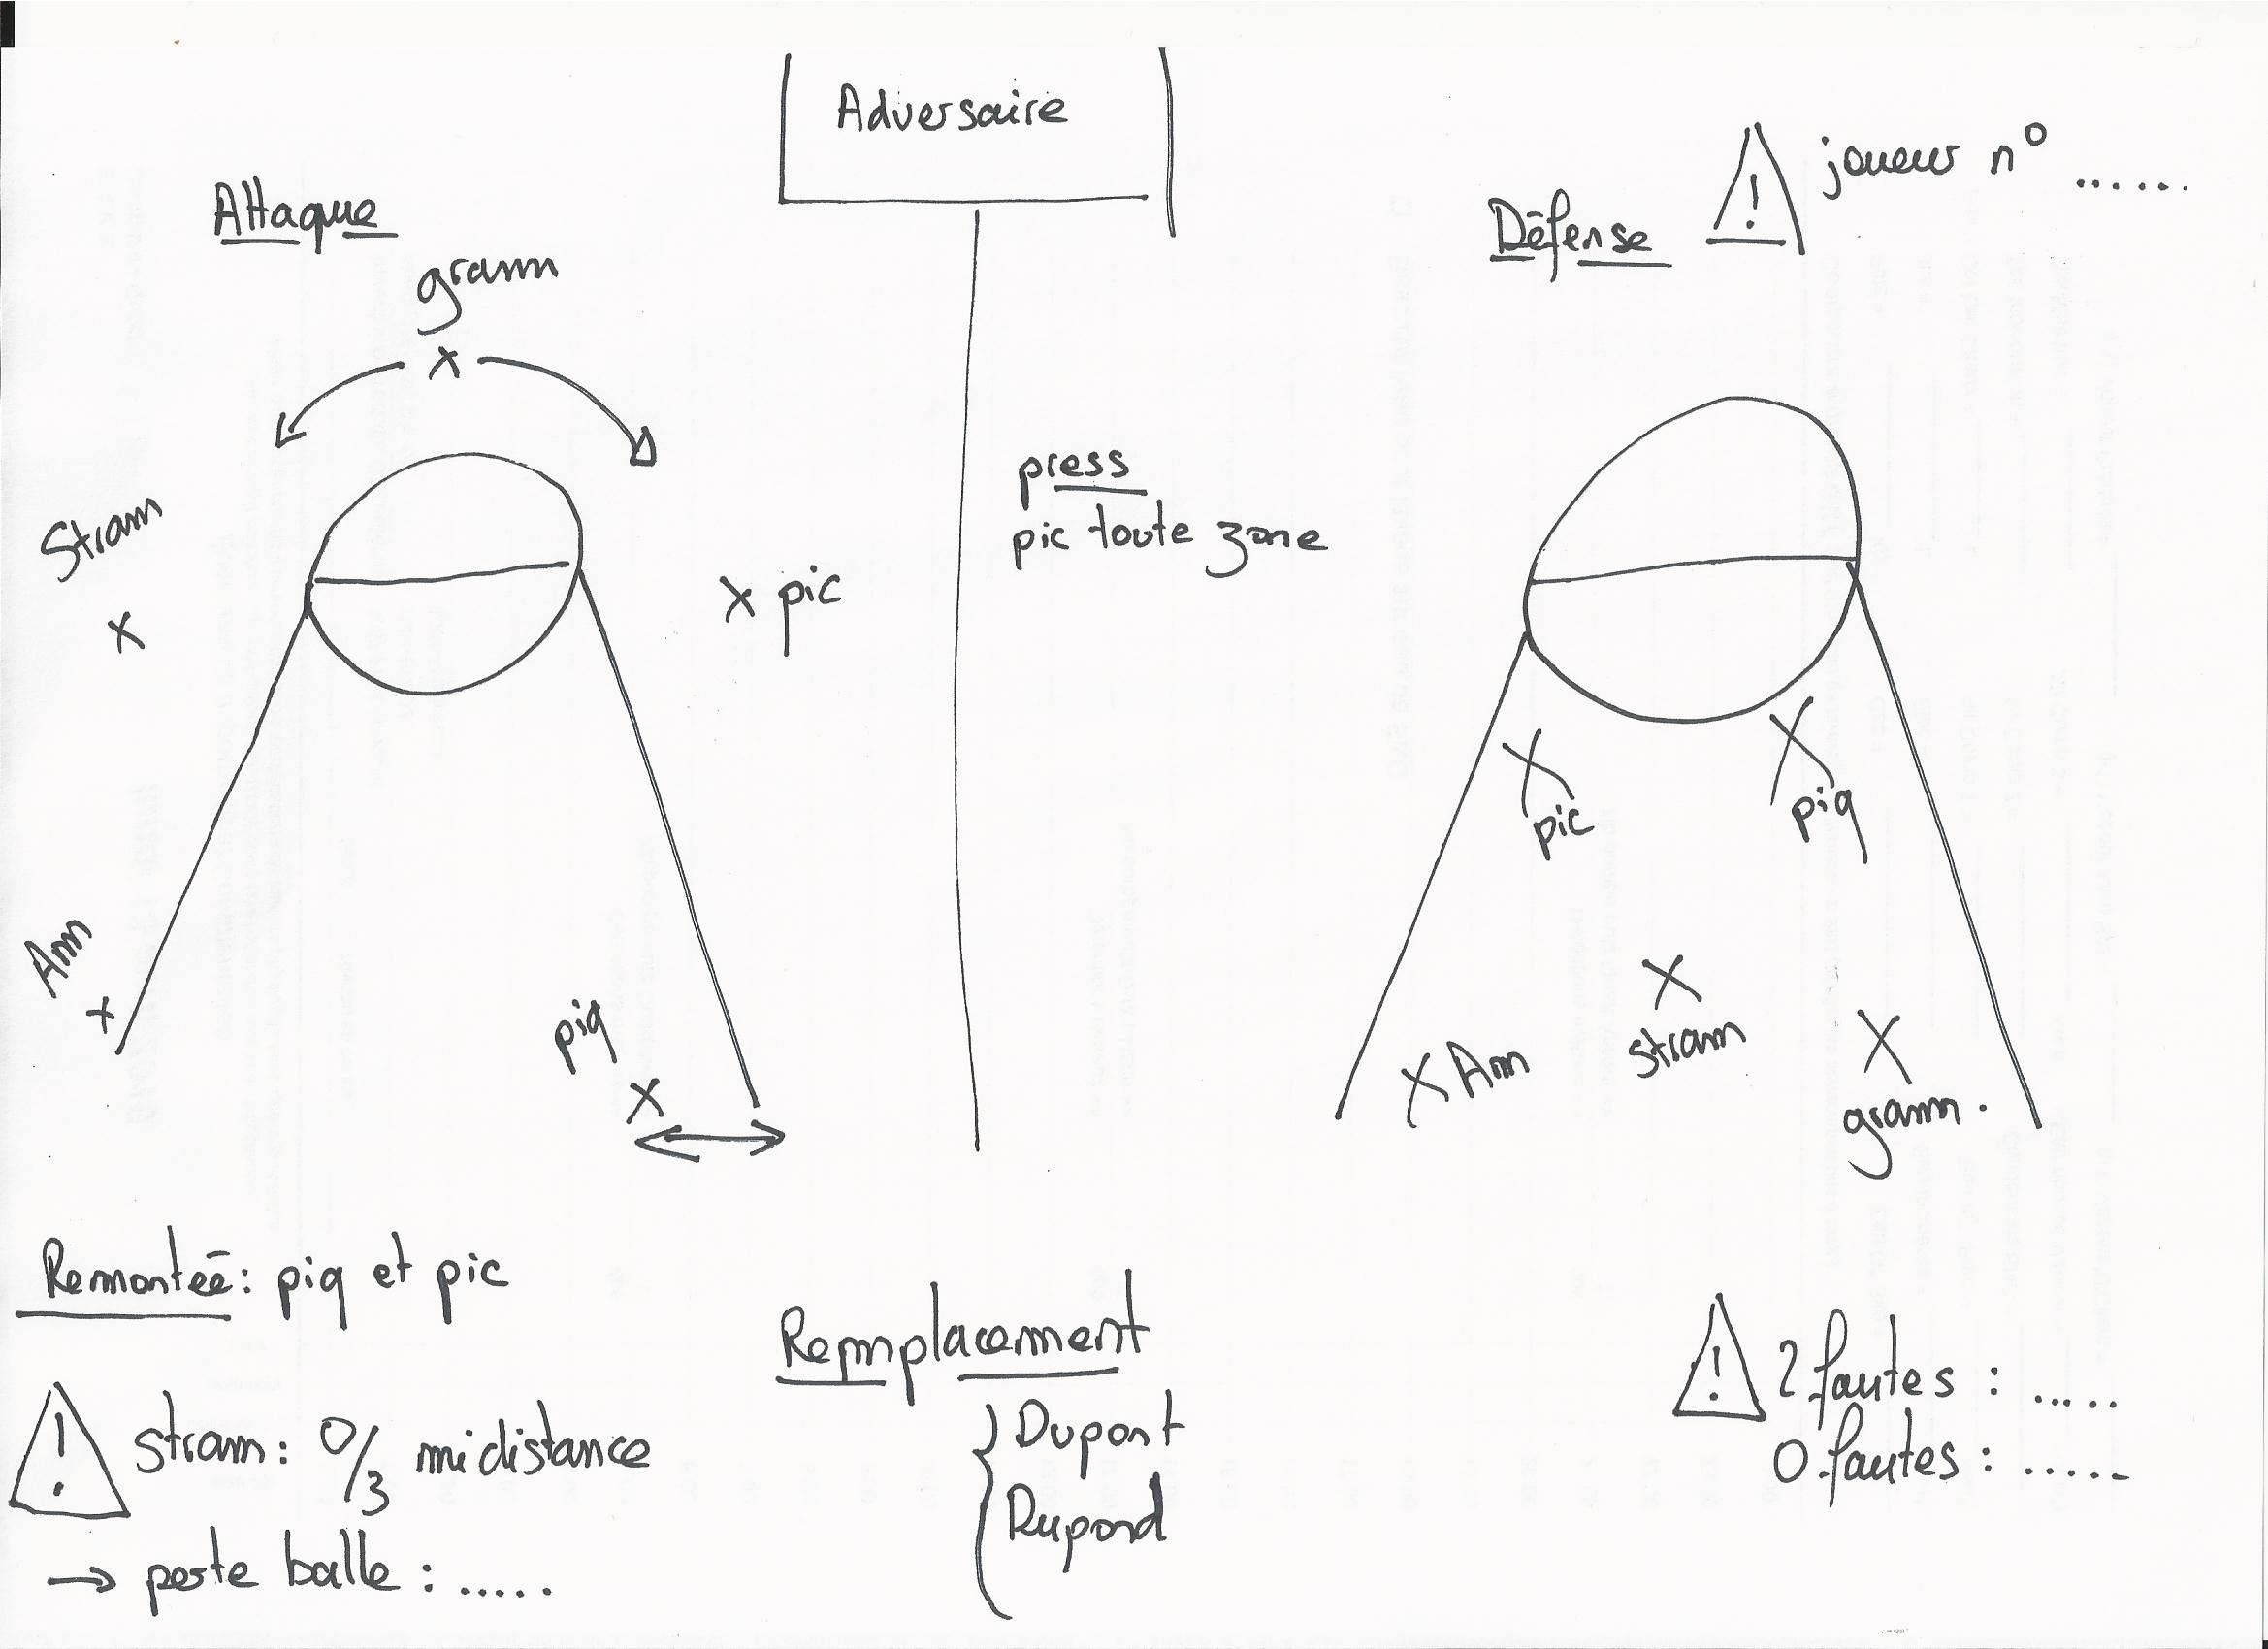 Adversaire
Attaque
gramm
x
Stram
x
x pic
Am
x
piq
x
press
pic toute zone
Défense
! joueur n° ......
X
pic
X
piq
X Am
X
stram
X
gramm.
Remontée: piq et pic
! stram: 0/3 midistance
→ perte balle : .....
Remplacement
Dupont
Dupond
! 2 fautes : .....
0 fautes : .....